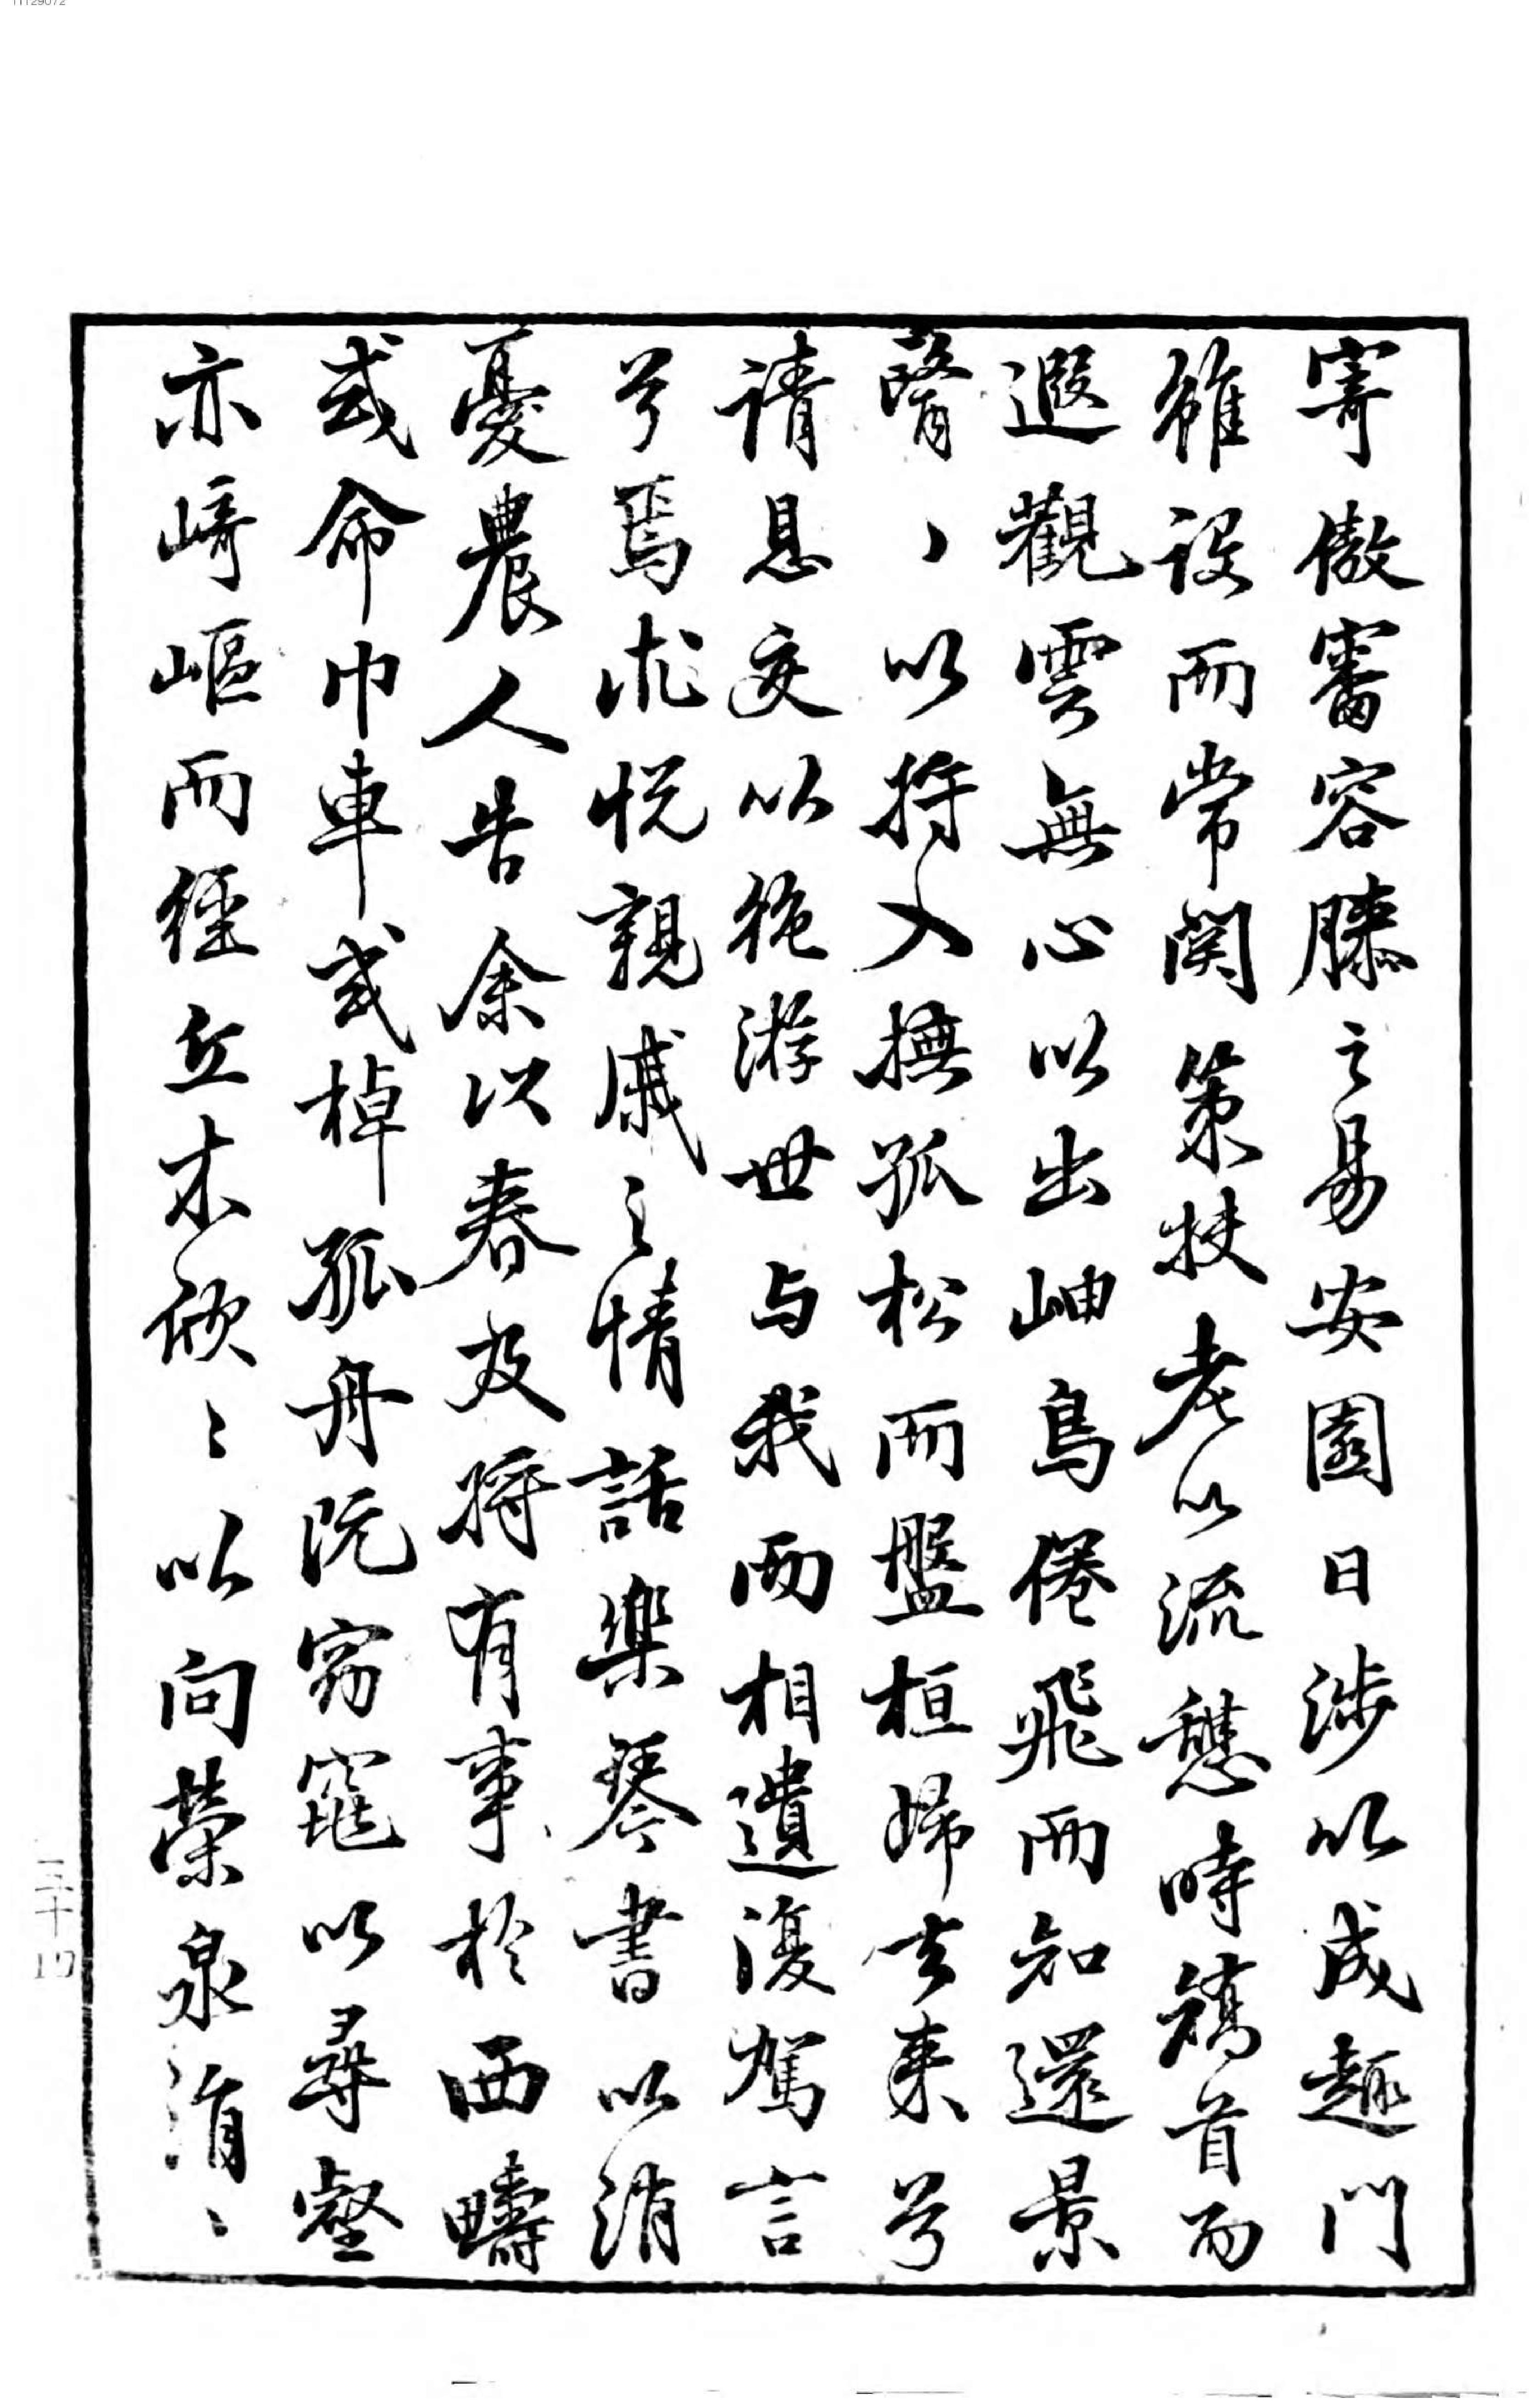 寄傲審容膝之易安園日涉以成趣門
雖設而常関策扶老以流憩時矯首而
遐觀雲無心以出岫鳥倦飛而知還景
翳〻以将入撫孤松而盤桓歸去来兮
请息交以絶游世与我而相遺復駕言
兮焉求悦親戚之情話樂琴書以消
憂農人告余以春及将有事於西疇
或命巾車或棹孤舟既窈窕以尋壑
亦崎嶇而經丘木欣〻以向榮泉涓〻
三十四